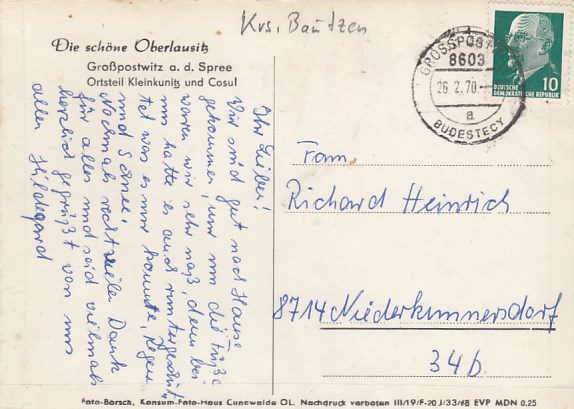 Krs. Bautzen
Die schöne Oberlausitz
Großpostwitz a. d. Spree
Ortsteil Kleinkunitz und Cosul
GROSSPOSTWITZ
8603
26.2.70
a
BUDESTECY
DEUTSCHE
DEMOKRATISCHE REPUBLIK
10
Ihr Lieben!
Wir sind gut nach Hause
gekommen, nur um die Füße
waren wir sehr naß, denn bei
uns hatte es auch runtergeschüt
tet was es nur konnte, Regen
und Schnee.
Nochmals recht viele Dank
für alles und seid vielmals
herzlich gegrüßt von uns
allen Hildegard
Fam.
Richard Heinrich
8714 Niederkunnersdorf
34b.
Foto-Borsch, Konsum-Foto-Haus Cunewalde OL. Nachdruck verboten III/19/F-20 J/33/68 EVP MDN 0.25